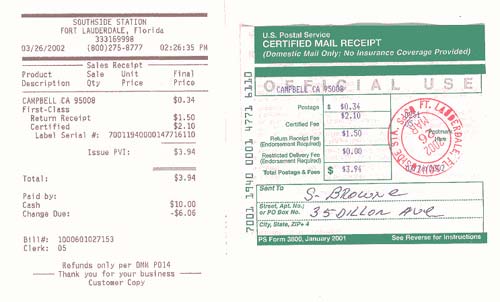 SOUTHSIDE STATION
FORT LAUDERDALE, Florida
333169998
03/26/2002 (800)275-8777 02:26:35 PM
Sales Receipt
Product Sale Unit Final
Description Qty Price Price
CAMPBELL CA 95008 $0.34
First-Class
Return Receipt $1.50
Certified $2.10
Label Serial #: 70011940000147716110
Issue PVI: $3.94
Total: $3.94
Paid by:
Cash $10.00
Change Due: -$6.06
Bill#: 1000601027153
Clerk: 05
Refunds only per DMM P014
Thank you for your business
Customer Copy
7001 1940 0001 4771 6110
U.S. Postal Service
CERTIFIED MAIL RECEIPT
(Domestic Mail Only; No Insurance Coverage Provided)
OFFICIAL USE
CAMPBELL CA 95008
Postage $ $0.34
Certified Fee $2.10
Return Receipt Fee
(Endorsement Required) $1.50
Restricted Delivery Fee
(Endorsement Required) $0.00
Total Postage & Fees $ $3.94
Postmark
Here
FT. LAUDERDALE, FL
MAR
2002
Sent To S. BROWNE
Street, Apt. No.;
or PO Box No. 35 DILLON AVE
City, State, ZIP+ 4
PS Form 3800, January 2001 See Reverse for Instructions